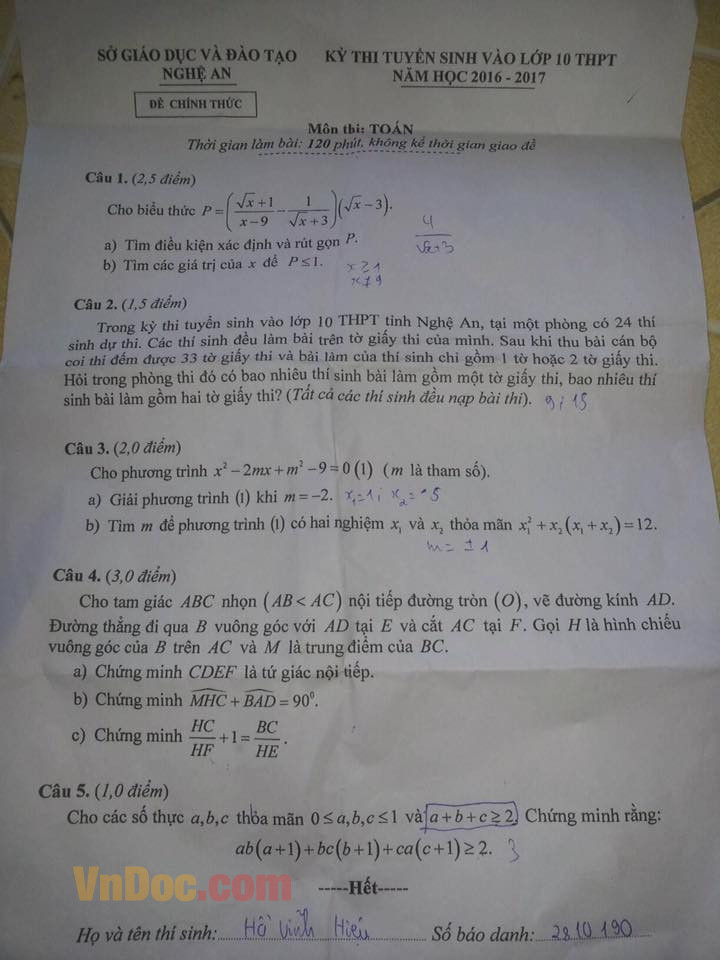 SỞ GIÁO DỤC VÀ ĐÀO TẠO
NGHỆ AN
KỲ THI TUYỂN SINH VÀO LỚP 10 THPT
NĂM HỌC 2016 - 2017
ĐỀ CHÍNH THỨC
Môn thi: TOÁN
Thời gian làm bài: 120 phút, không kể thời gian giao đề
Câu 1. (2,5 điểm)
Cho biểu thức P = ( (√x + 1)/(x − 9) − 1/(√x + 3) ) (√x − 3).
4/(√x+3)
a) Tìm điều kiện xác định và rút gọn P.
b) Tìm các giá trị của x để P ≤ 1. x ≥ 1
x ≠ 9
Câu 2. (1,5 điểm)
Trong kỳ thi tuyển sinh vào lớp 10 THPT tỉnh Nghệ An, tại một phòng có 24 thí
sinh dự thi. Các thí sinh đều làm bài trên tờ giấy thi của mình. Sau khi thu bài cán bộ
coi thi đếm được 33 tờ giấy thi và bài làm của thí sinh chỉ gồm 1 tờ hoặc 2 tờ giấy thi.
Hỏi trong phòng thi đó có bao nhiêu thí sinh bài làm gồm một tờ giấy thi, bao nhiêu thí
sinh bài làm gồm hai tờ giấy thi? (Tất cả các thí sinh đều nạp bài thi). 9; 15
Câu 3. (2,0 điểm)
Cho phương trình x² − 2mx + m² − 9 = 0 (1) (m là tham số).
a) Giải phương trình (1) khi m = −2. x₁=1; x₂=-5
b) Tìm m để phương trình (1) có hai nghiệm x₁ và x₂ thỏa mãn x₁² + x₂(x₁ + x₂) = 12.
m = ±1
Câu 4. (3,0 điểm)
Cho tam giác ABC nhọn (AB < AC) nội tiếp đường tròn (O), vẽ đường kính AD.
Đường thẳng đi qua B vuông góc với AD tại E và cắt AC tại F. Gọi H là hình chiếu
vuông góc của B trên AC và M là trung điểm của BC.
a) Chứng minh CDEF là tứ giác nội tiếp.
b) Chứng minh MHC + BAD = 90⁰.
c) Chứng minh HC/HF + 1 = BC/HE.
Câu 5. (1,0 điểm)
Cho các số thực a,b,c thỏa mãn 0 ≤ a,b,c ≤ 1 và a + b + c ≥ 2. Chứng minh rằng:
ab(a+1) + bc(b+1) + ca(c+1) ≥ 2. 3
-----Hết-----
VnDoc.com
Họ và tên thí sinh: Hồ Vĩnh Hiếu Số báo danh: 2810190